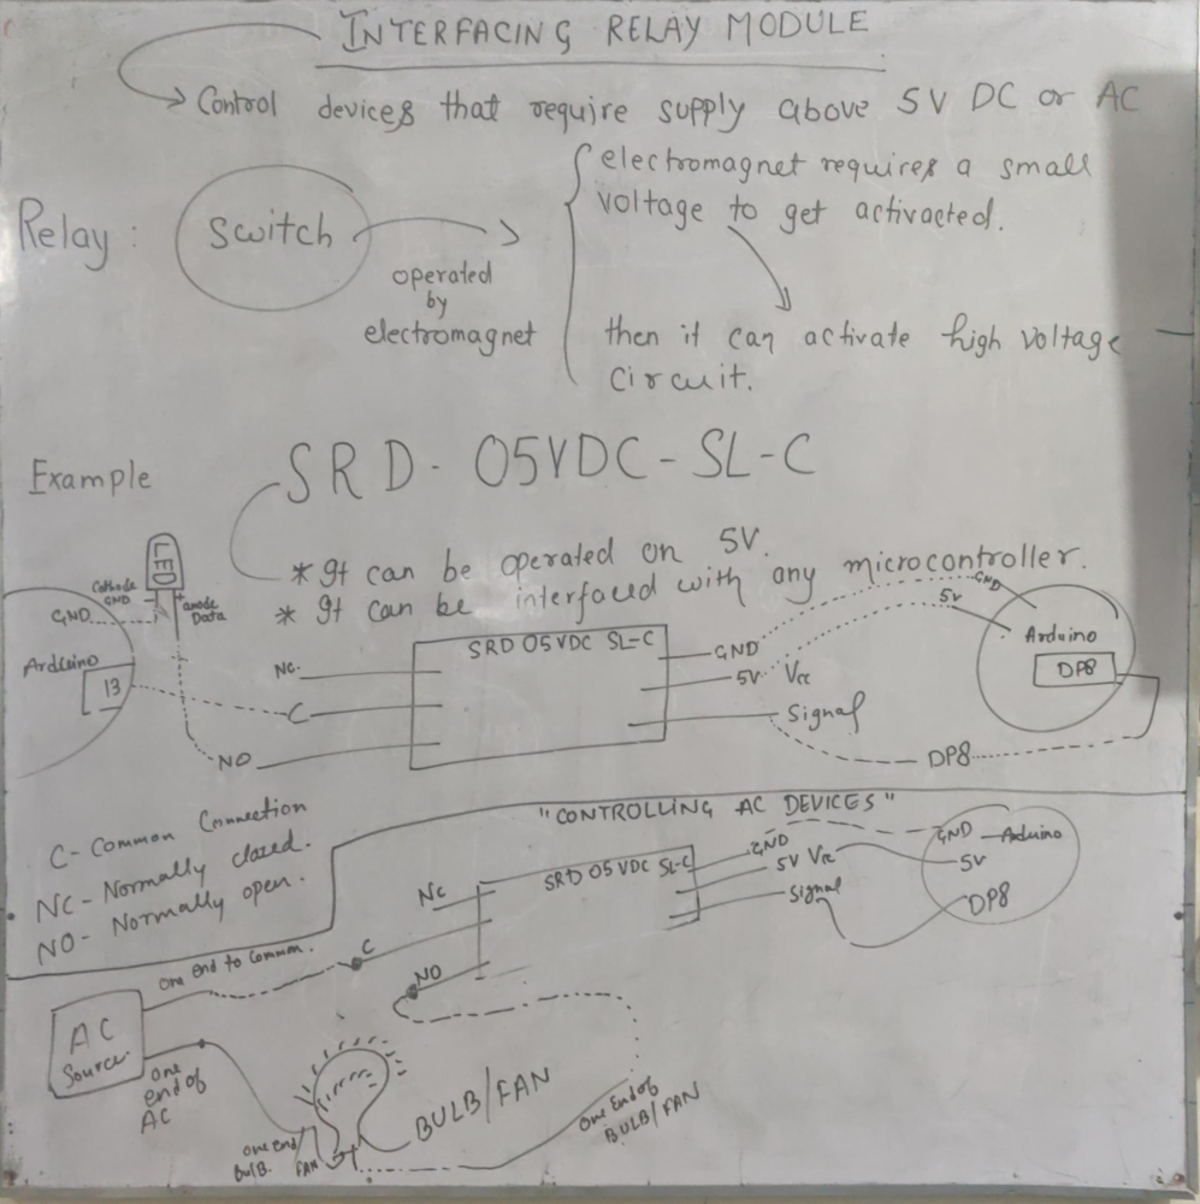 INTERFACING RELAY MODULE
Control devices that require supply above 5V DC or AC
Relay :
Switch
operated
by
electromagnet
electromagnet requires a small
voltage to get activacted.
then it can activate high voltage
circuit.
Example
SRD-05VDC-SL-C
* It can be operated on 5V.
* It can be interfaced with any microcontroller.
LED
Cathode
GND
GND
+
anode
Data
Arduino
13
NC.
C
NO
SRD 05VDC SL-C
GND
5V Vcc
Signal
GND
5V
Arduino
DP8
DP8
C- Common Connection
NC- Normally closed.
NO- Normally open.
"CONTROLLING AC DEVICES"
NC
C
NO
SRD 05VDC SL-C
GND
5V Vcc
Signal
GND
Arduino
5V
DP8
one end to Comm.
AC
Source.
one
end of
AC
one end
BulB.
FAN
BULB/FAN
one End of
BULB/FAN